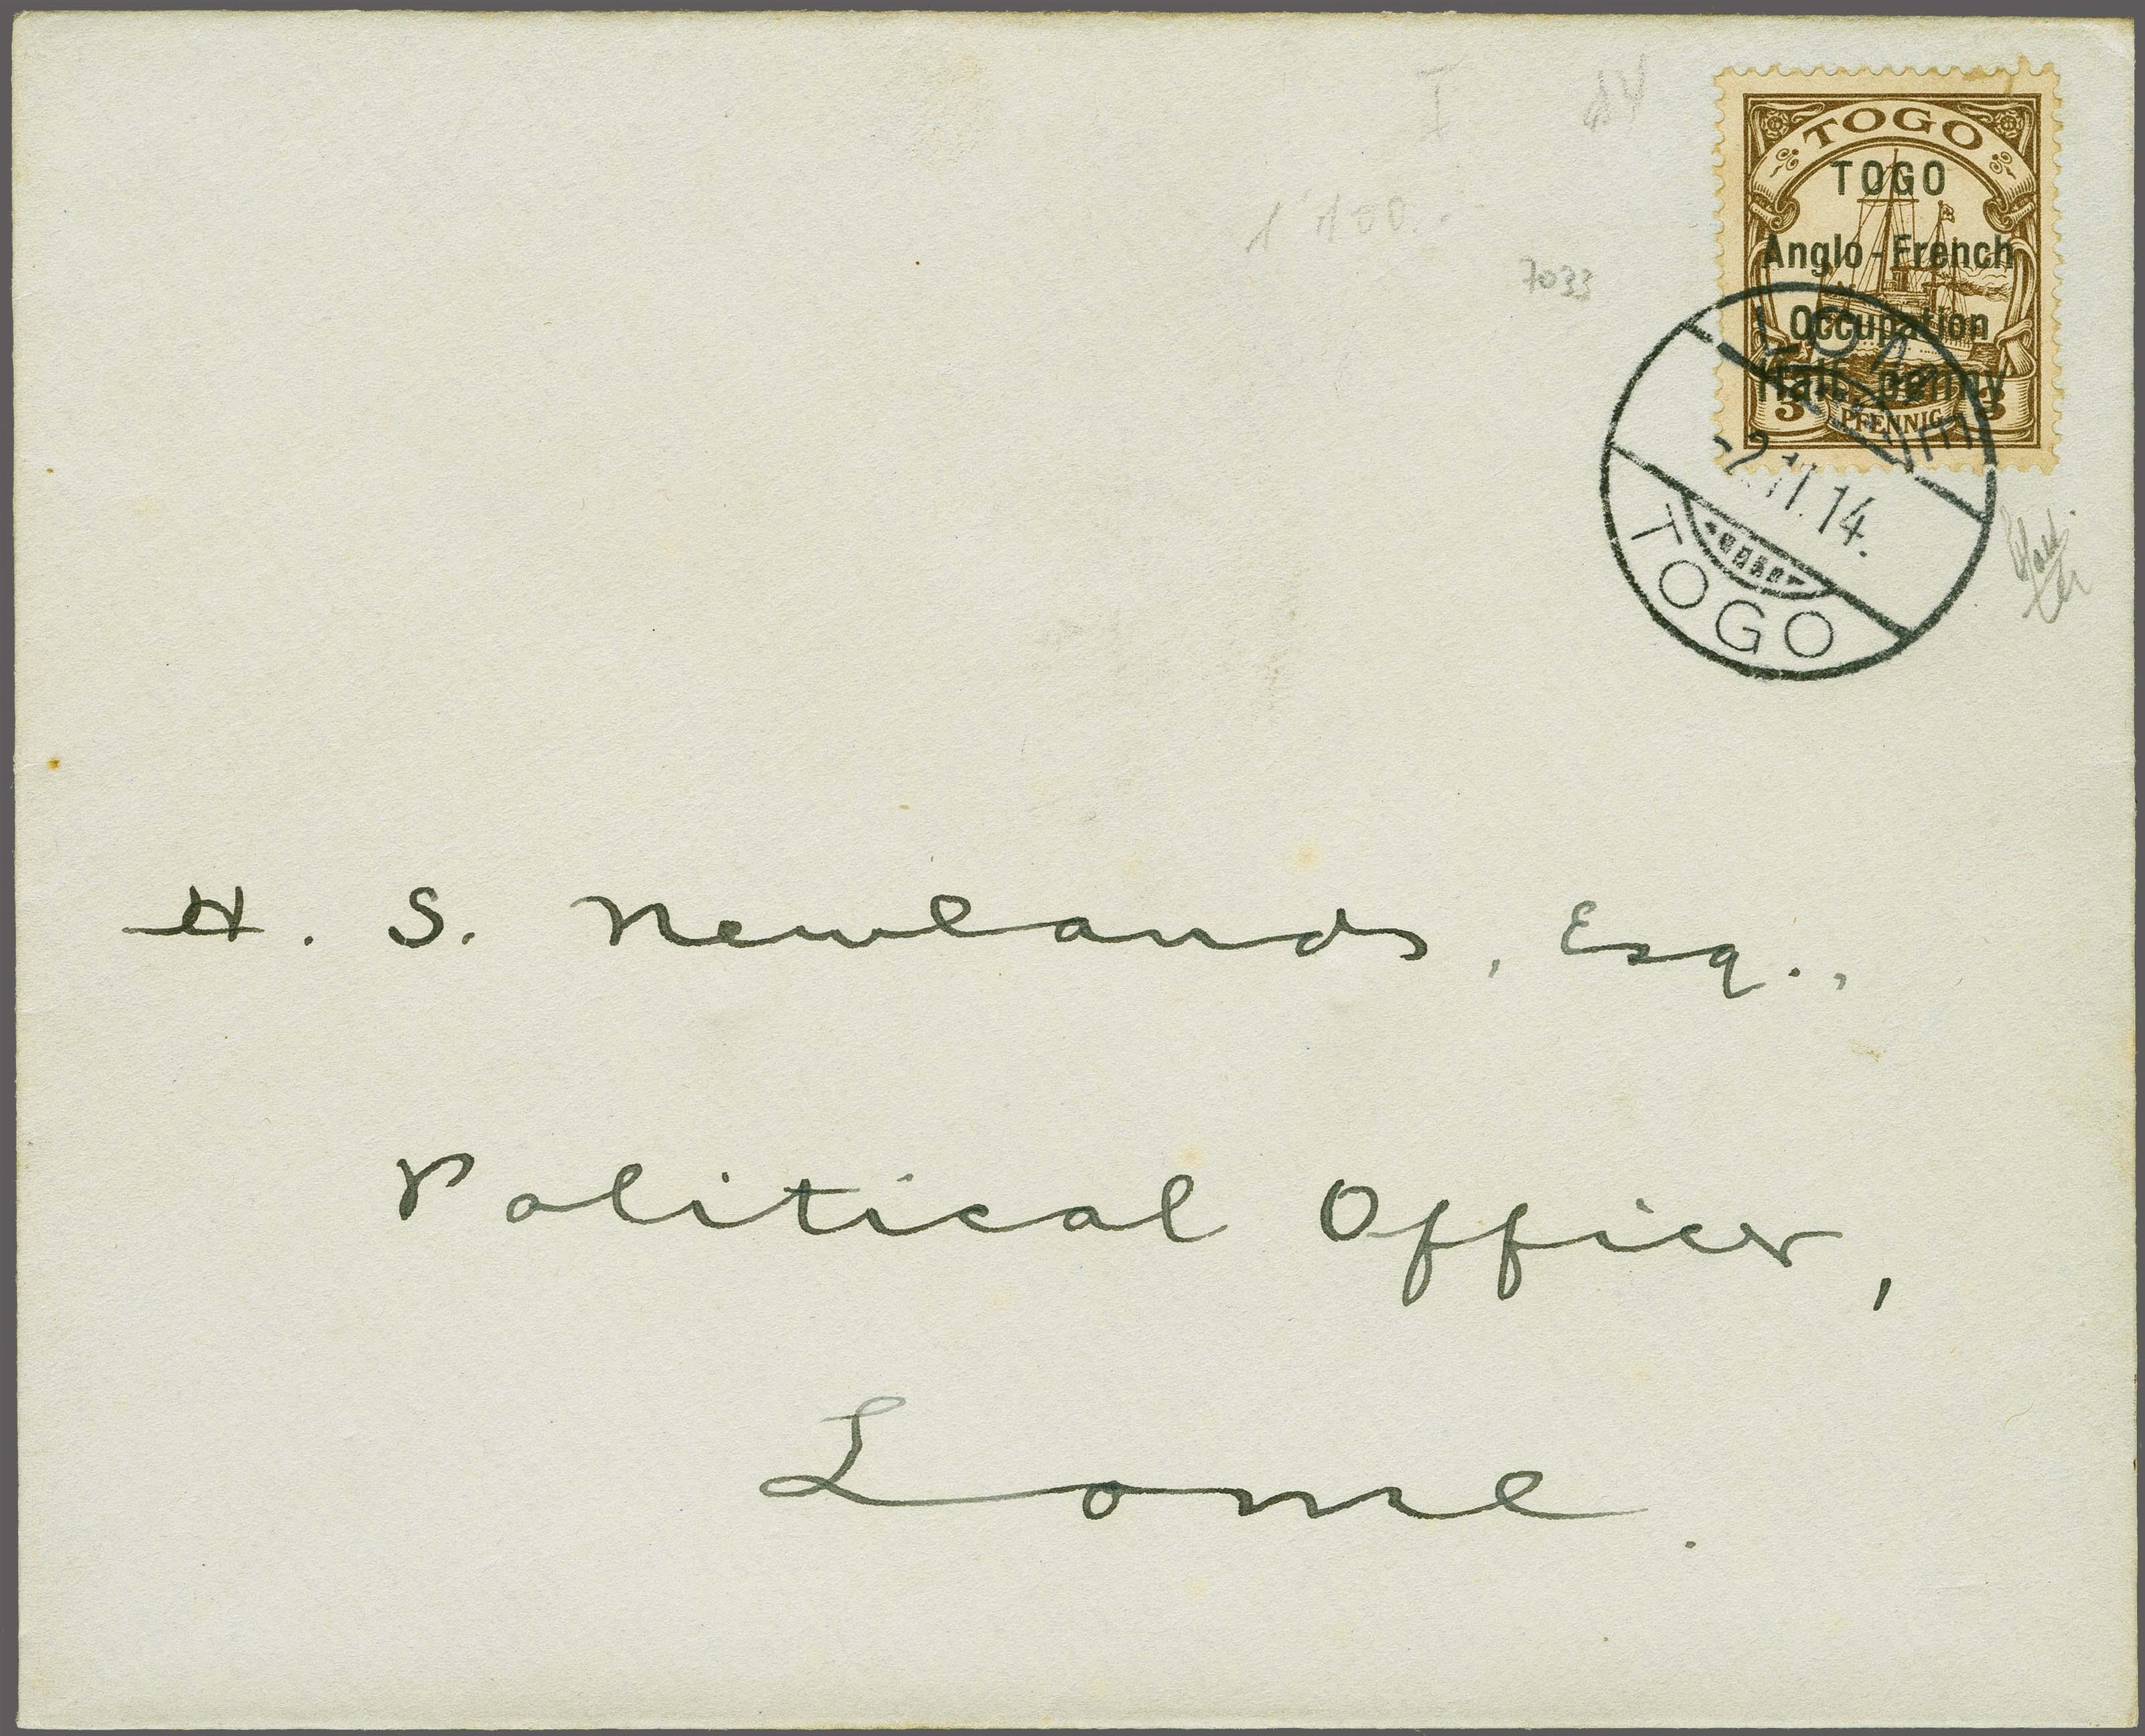 TOGO
TOGO
Anglo-French
Occupation
Half penny
3 PFENNIG 3
LOME
-2.11.14.
TOGO
1'100.-
7033
H. S. Newlands, Esq.,
Political Officer,
Lome.